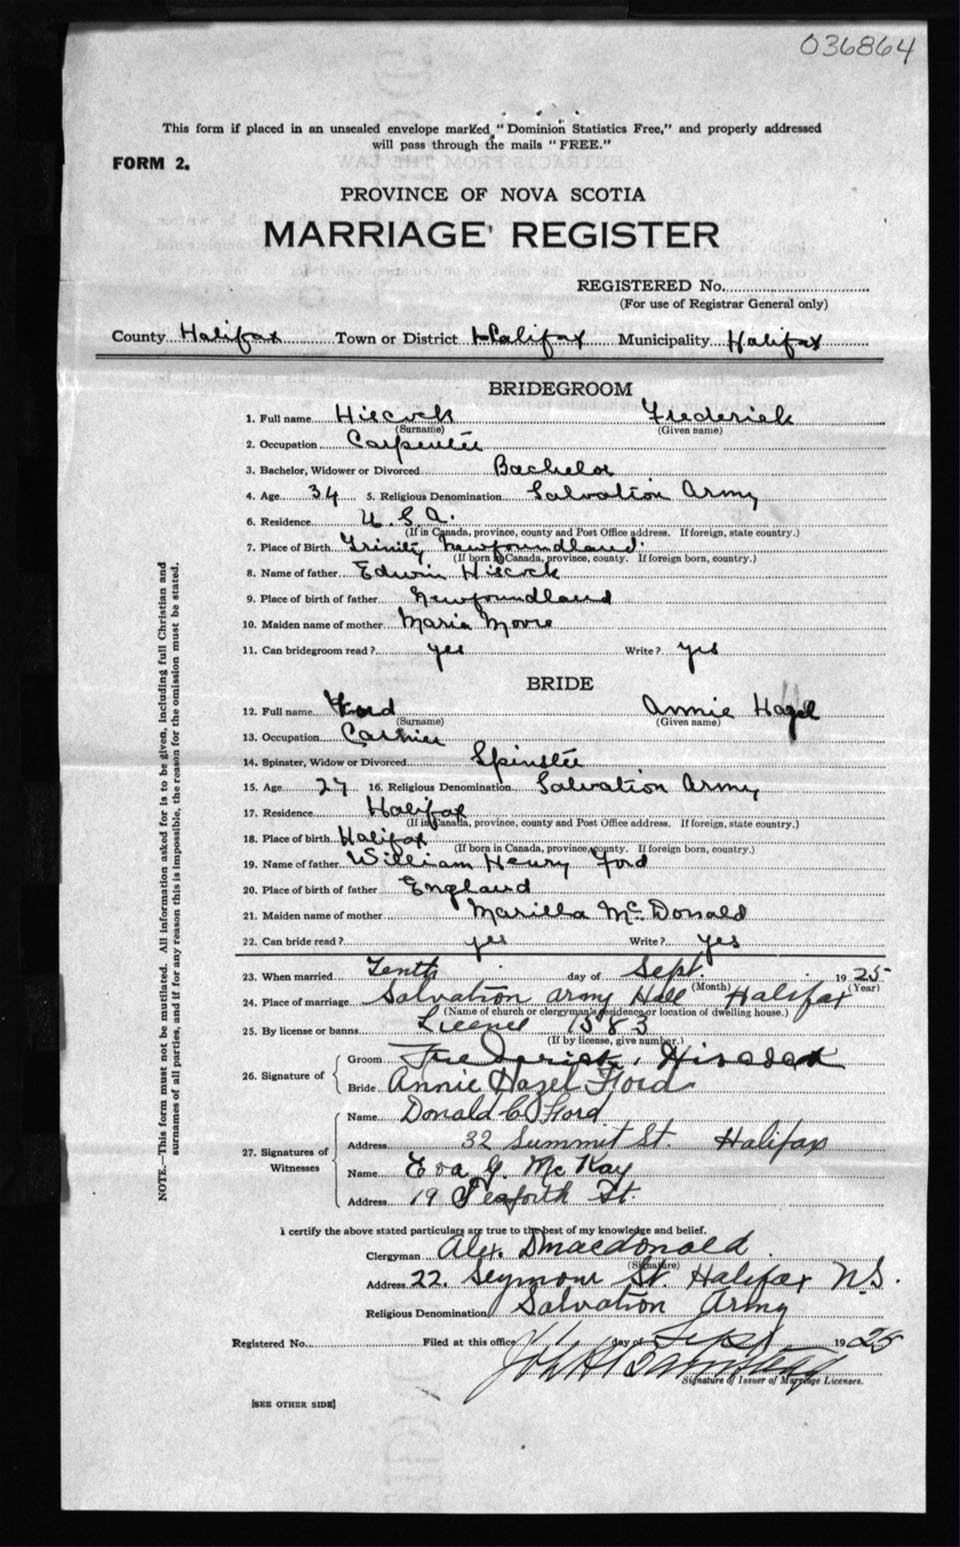 036864
This form if placed in an unsealed envelope marked "Dominion Statistics Free," and properly addressed
will pass through the mails "FREE."
FORM 2.
PROVINCE OF NOVA SCOTIA
MARRIAGE REGISTER
REGISTERED No.
(For use of Registrar General only)
County Halifax Town or District Halifax Municipality Halifax
BRIDEGROOM
1. Full name Hiscock Frederick
(Surname) (Given name)
2. Occupation Carpenter
3. Bachelor, Widower or Divorced Bachelor
4. Age 34 5. Religious Denomination Salvation Army
6. Residence U. S. A.
(If in Canada, province, county and Post Office address. If foreign, state country.)
7. Place of Birth Trinity Newfoundland.
(If born in Canada, province, county. If foreign born, country.)
8. Name of father Edwin Hiscock
9. Place of birth of father Newfoundland
10. Maiden name of mother Maria Moore
11. Can bridegroom read? yes Write? yes
BRIDE
12. Full name Ford Annie Hazel
(Surname) (Given name)
13. Occupation Cashier
14. Spinster, Widow or Divorced Spinster
15. Age 27 16. Religious Denomination Salvation Army
17. Residence Halifax
(If in Canada, province, county and Post Office address. If foreign, state country.)
18. Place of birth Halifax
(If born in Canada, province, county. If foreign born, country.)
19. Name of father William Henry Ford
20. Place of birth of father England
21. Maiden name of mother Marilla McDonald
22. Can bride read? yes Write? yes
23. When married Tenth day of Sept. 1925
(Month) (Year)
24. Place of marriage Salvation Army Hall Halifax
(Name of church or clergyman's residence or location of dwelling house.)
25. By license or banns Licence 1583
(If by license, give number.)
26. Signature of
Groom Frederick Hiscock
Bride Annie Hazel Ford
27. Signatures of Witnesses
Name Donald C Ford
Address 32 Summit St. Halifax
Name Eva G. McKay
Address 19 Seaforth St.
I certify the above stated particulars are true to the best of my knowledge and belief.
Clergyman Alex. D Macdonald
(Signature)
Address 22. Seymour St. Halifax N.S.
Religious Denomination Salvation Army
Registered No. Filed at this office day of Sept 1925
Signature of Issuer of Marriage Licenses.
[SEE OTHER SIDE]
NOTE.—This form must not be mutilated. All information asked for is to be given, including full Christian and
surnames of all parties, and if for any reason this is impossible, the reason for the omission must be stated.